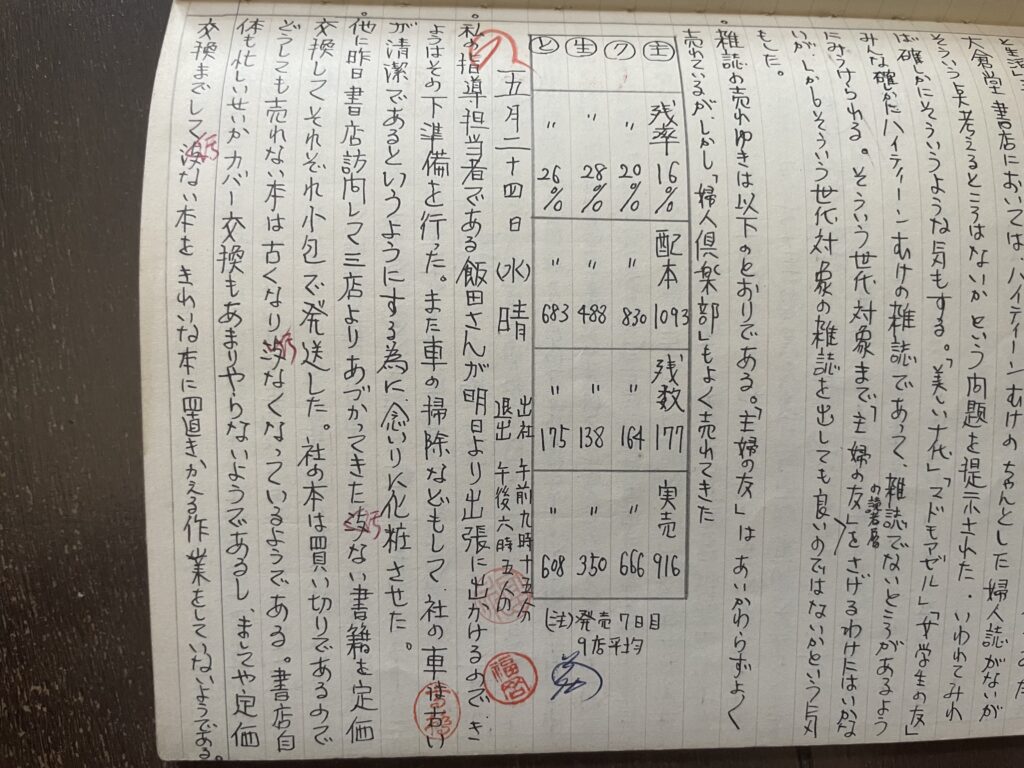 と生活」
大倉堂書店においては、ハイティーンむけのちゃんとした婦人誌がないが
そういう点考えるところはないかという問題を提示された。いわれてみれ
ば確かにそういうような気もする。「美しい十代」「マドモアゼル」「女学生の友」
みんな確かだハイティーンむけの雑誌であって、雑誌でないところがあるよう
にみうけられる。そういう世代対象まで「主婦の友」をさげるわけにはいかな
の読者層
いが、しかしそういう世代対象の雑誌を出しても良いのではないかという気
もした。
。雑誌の売れゆきは以下のとおりである。「主婦の友」はあいかわらずよく
売れているが、しかし「婦人倶楽部」もよく売れてきた
主 残率16% 配本1093 残数177 実売916
ク 〃20% 〃830 〃164 〃666
生 〃28% 〃488 〃138 〃350
と 〃26% 〃683 〃175 〃608
(注)発売7日目
9店平均
五月二十四日(水)晴
出社 午前九時十五分
退出 午後六時五分
福宮
。私の指導担当者である飯田さんが明日より出張に出かけるので、き
ょうはその下準備を行った。また車の掃除などもして、社の車は
が清潔であるというようにする為に、念いりに化粧させた。
。他に昨日書店訪問して三店よりあづかってきた汚ない書籍を定価
交換してそれぞれ小包で発送した。社の本は買い切りであるので
どうしても売れない本は古くなり汚なくなっているようである。書店自
体も忙しいせいかカバー交換もあまりやらないようであるし、ましてや定価
交換までして汚ない本をきれいな本に置きかえる作業をしていないようである。